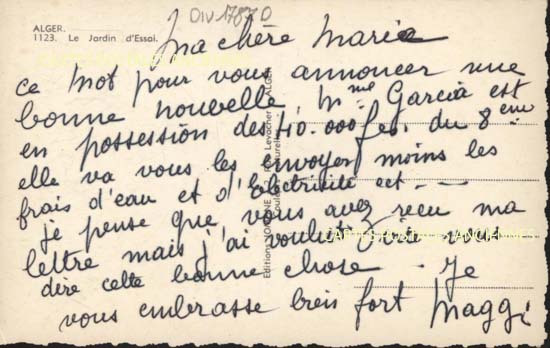 DIV 1787 D
ALGER.
1123. Le Jardin d'Essai.
Ma chère Maria
ce mot pour vous annoncer une
bonne nouvelle, Mme Garcia est
en possession des 40.000 fcs. du 8eme
elle va vous les envoyer moins les
frais d'eau et d'électricité ect - --
je pense que vous avez reçu ma
lettre mais j'ai voulu
dère cette bonne chose - Je
vous embrasse bien fort Maggi
CARTES POSTALES ANCIENNES
Editions
ALGER